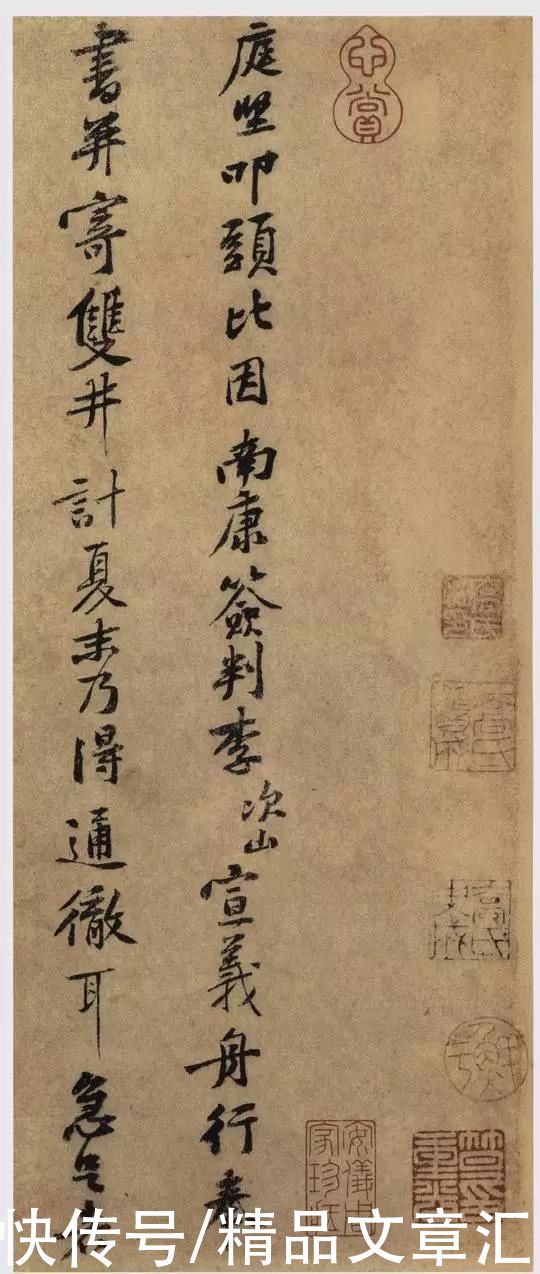 心賞
安儀周家珍藏
庭堅叩頭比因南康簽判李次山宣義舟行奉
書并寄雙井計夏末乃得通徹耳急足
快传号/精品文章汇